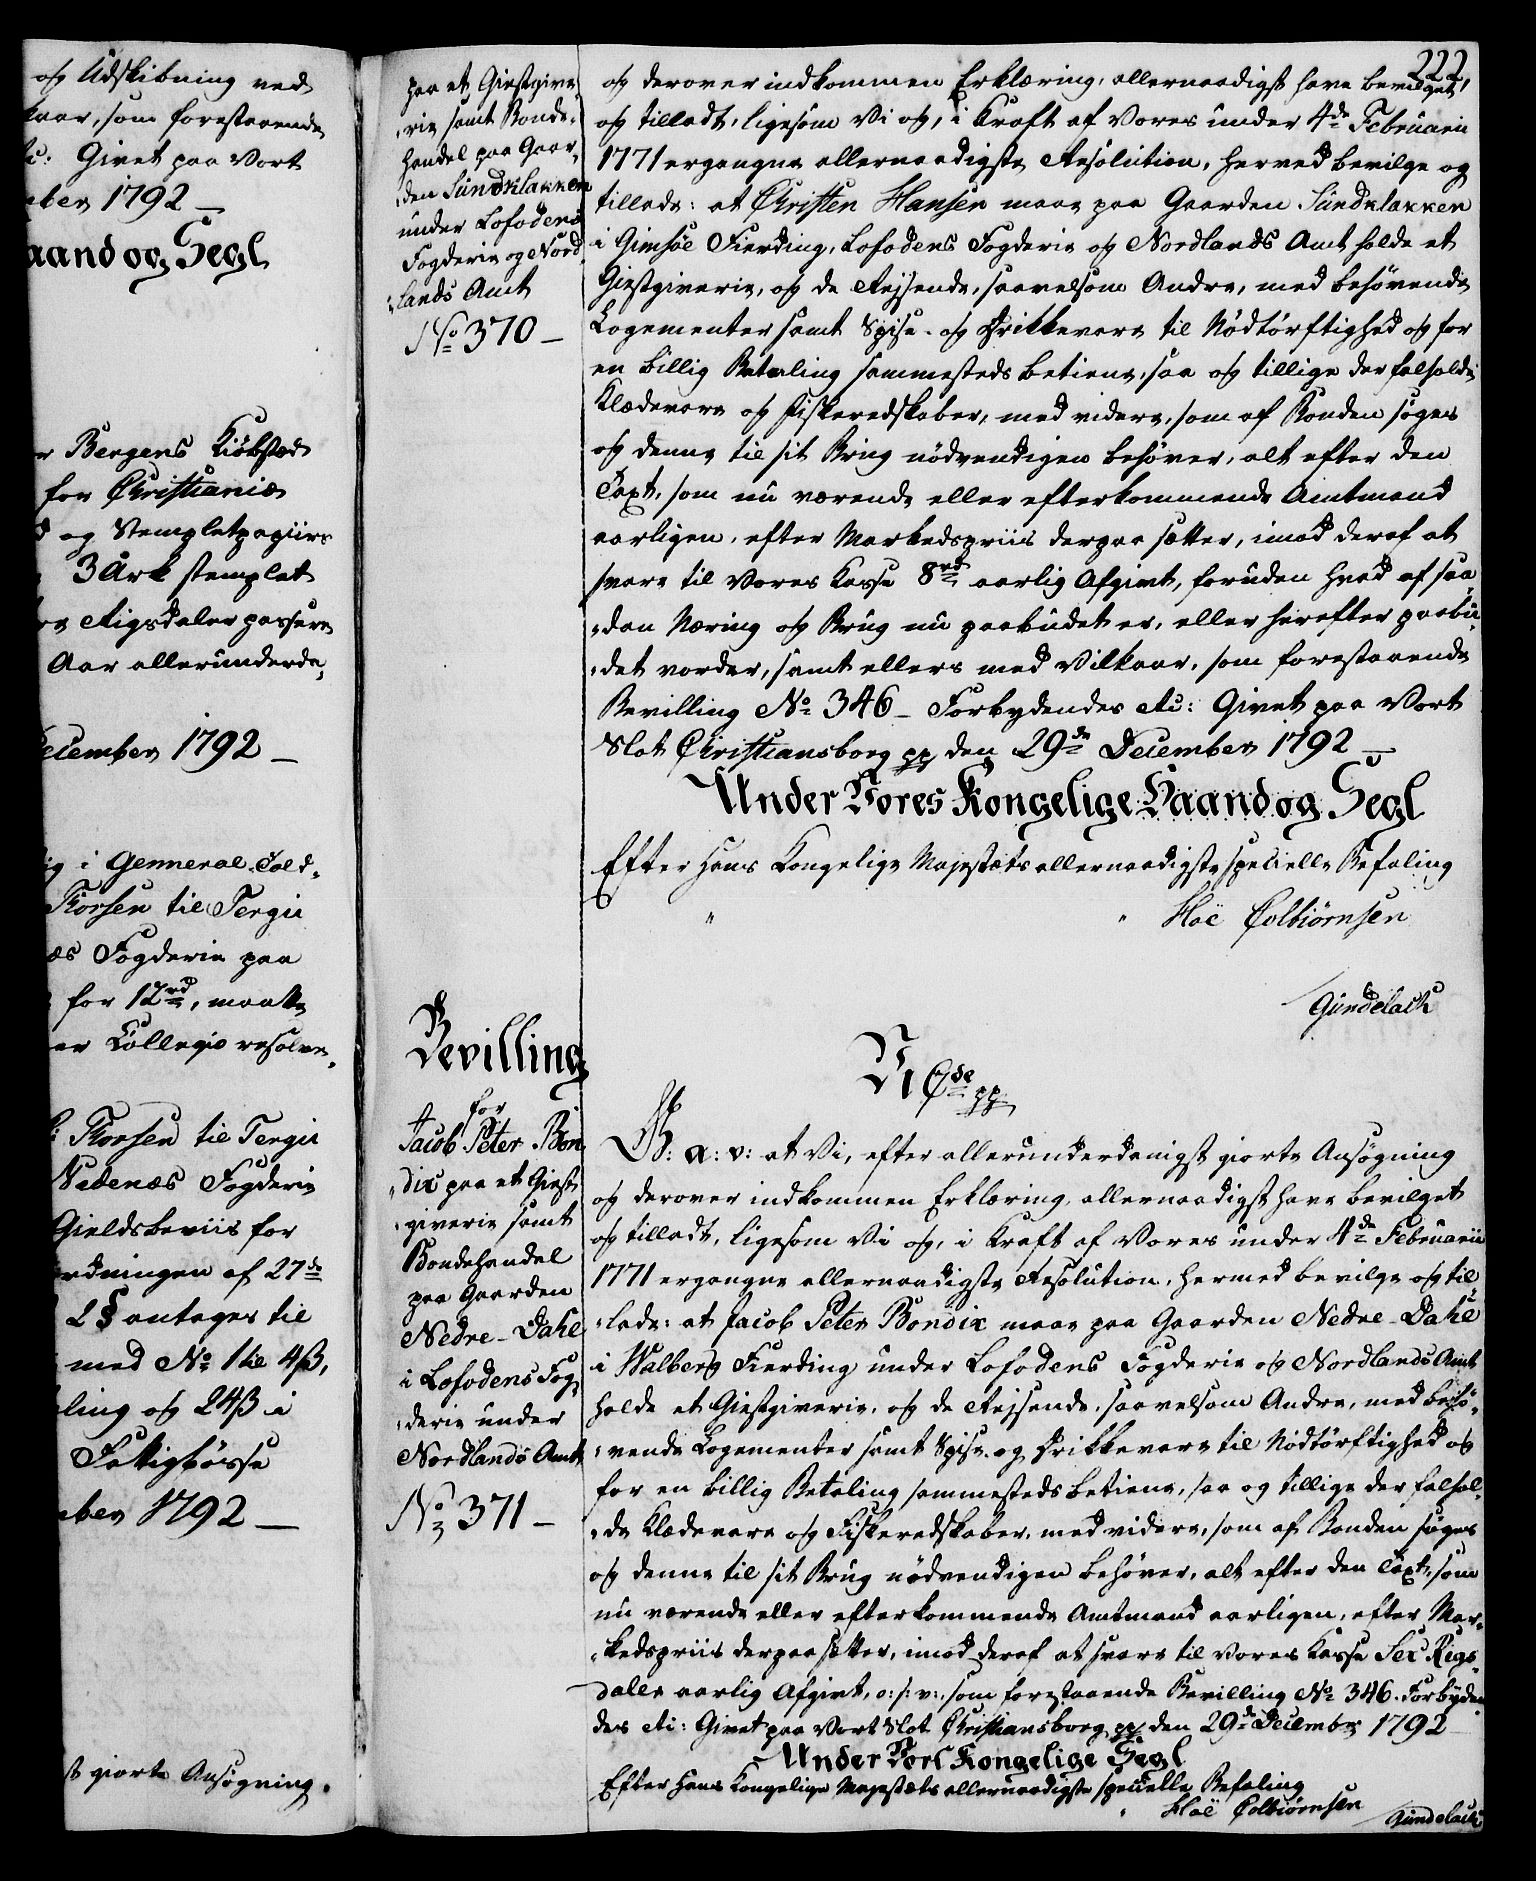 og Udskibning ved
kaar, som forestaaende
etc: Givet paa Vort
mber 1792 –
aand og Segl
Bergens Kiøbsted
for Christianiæ
og Stemplet papiirs
3 Ark stemplet
Rigsdaler passere
Aar allerunderda-
December 1792 –
i Genneral Told-
Thorsen til Tergii
æs Fogderie paa
for 12rd, maatte
Collegio resolve-
Thorsen til Tergii
Nedenæs Fogderie
Gieldsbeviis for
ordningen af 27de
2 § antages til
med No 1 til 4ß,
ling og 24ß i
Fattigbøsse
mber 1792 –
st giorte Ansøgning
paa et Giestgive-
-rie samt Bonde-
handel paa Gaar-
-den Sundklakken
under Lofodens
Fogderie og Nord-
-lands Amt
No 370 –
Bevilling
for
Jacob Peter Bon
-dix paa et Giest-
-giverie samt
Bondehandel
paa Gaarden
Nedre-Dahl
i Lofodens Fog-
-derie under
Nordlands Amt
No 371 –
222
og derover indkommen Erklæring, allernaadigst have bevilget,
og tilladt, ligesom Vi og, i Kraft af Vores under 4de Februarii
1771 ergangne allernaadigste Resolution, herved bevilge og
tillade: at Christen Hansen maae paa Gaarden Sundklakken
i Gimsøe Fierding, Lofodens Fogderie og Nordlands Amt holde et
Giestgiverie, og de Rejsende, saavelsom Andre, med behøvende
Logementer samt Spise- og Drikkevare til Nødtørftighed og for
en billig Betaling sammesteds betiene, saa og tillige der falholde
Klædevare og Fiskeredskaber, med videre, som af Bonden søges
og denne til sit Brug nødvendigen behøver, alt efter den
Taxt, som nu værende eller efterkommende Amtmand
aarligen, efter Markedspriis derpaa sætter, imod deraf at
svare til Vores Kasse 8rd aarlig Afgivt, foruden hvad af saa-
-dan Næring og Brug nu paabudet er, eller herefter paabu-
-det vorder, samt ellers med Vilkaar, som forestaaende
Bevilling No 346 – Forbydendes etc: Givet paa Vort
Slot Christiansborg pp den 29de December 1792 –
Under Vores Kongelige Haand og Segl
Efter Hans Kongelige Majestæts allernaadigste specielle Befaling
" " Hoë Colbiørnsen
Gundelach
N C 7de pp
G: a: v: at Vi, efter allerunderdanigst giorte Ansøgning
og derover indkommen Erklæring, allernaadigst have bevilget
og tilladt, ligesom Vi og, i Kraft af Vores under 4de Februarii
1771 ergangne allernaadigste Resolution, hermed bevilge og til
-lade: at Jacob Peter Bondix maae paa Gaarden Nedre-Dahl
i Walberg Fierding under Lofodens Fogderie og Nordlands Amt
holde et Giestgiverie, og de Rejsende, saavelsom Andre, med behø-
-vende Logementer samt Spise- og Drikkevare til Nødtørftighed og
for en billig Betaling sammesteds betiene, saa og tillige der falhol-
-de Klædevare og Fiskeredskaber, med videre, som af Bonden søges
og denne til sit Brug nødvendigen behøver, alt efter den Taxt, som
nu værende eller efterkommende Amtmand aarligen, efter Mar-
-kedspriis derpaa sætter, imod deraf at svare til Vores Kasse Sex Rigs-
daler aarlig Afgivt, o: s: v:, som forestaaende Bevilling No 346. Forbyden-
des etc: Givet paa Vort Slot Christiansborg pp den 29de December 1792
Under Vort Kongelige Segl
Efter Hans Kongelige Majestæts allernaadigste specielle Befaling
" Hoë Colbiørnsen
Gundelach